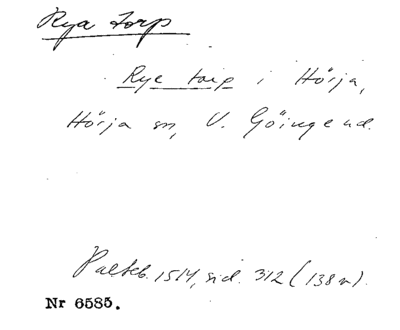 Rya torp
Rye torp i Hörja,
Hörja sn, V. Göinge hd.
Palteb. 1514, sid. 312 (138 v).
Nr 6585.